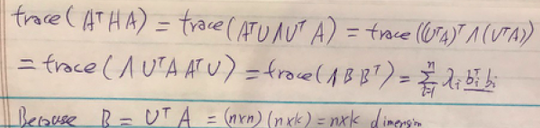 trace(AᵀHA) = trace(AᵀUΛUᵀA) = trace((UᵀA)ᵀΛ(UᵀA))
= trace(ΛUᵀAAᵀU) = trace(ΛBBᵀ) = ∑ⁿᵢ₌₁ λᵢ bᵢᵀbᵢ
Because B = UᵀA = (n×n)(n×k) = n×k dimension